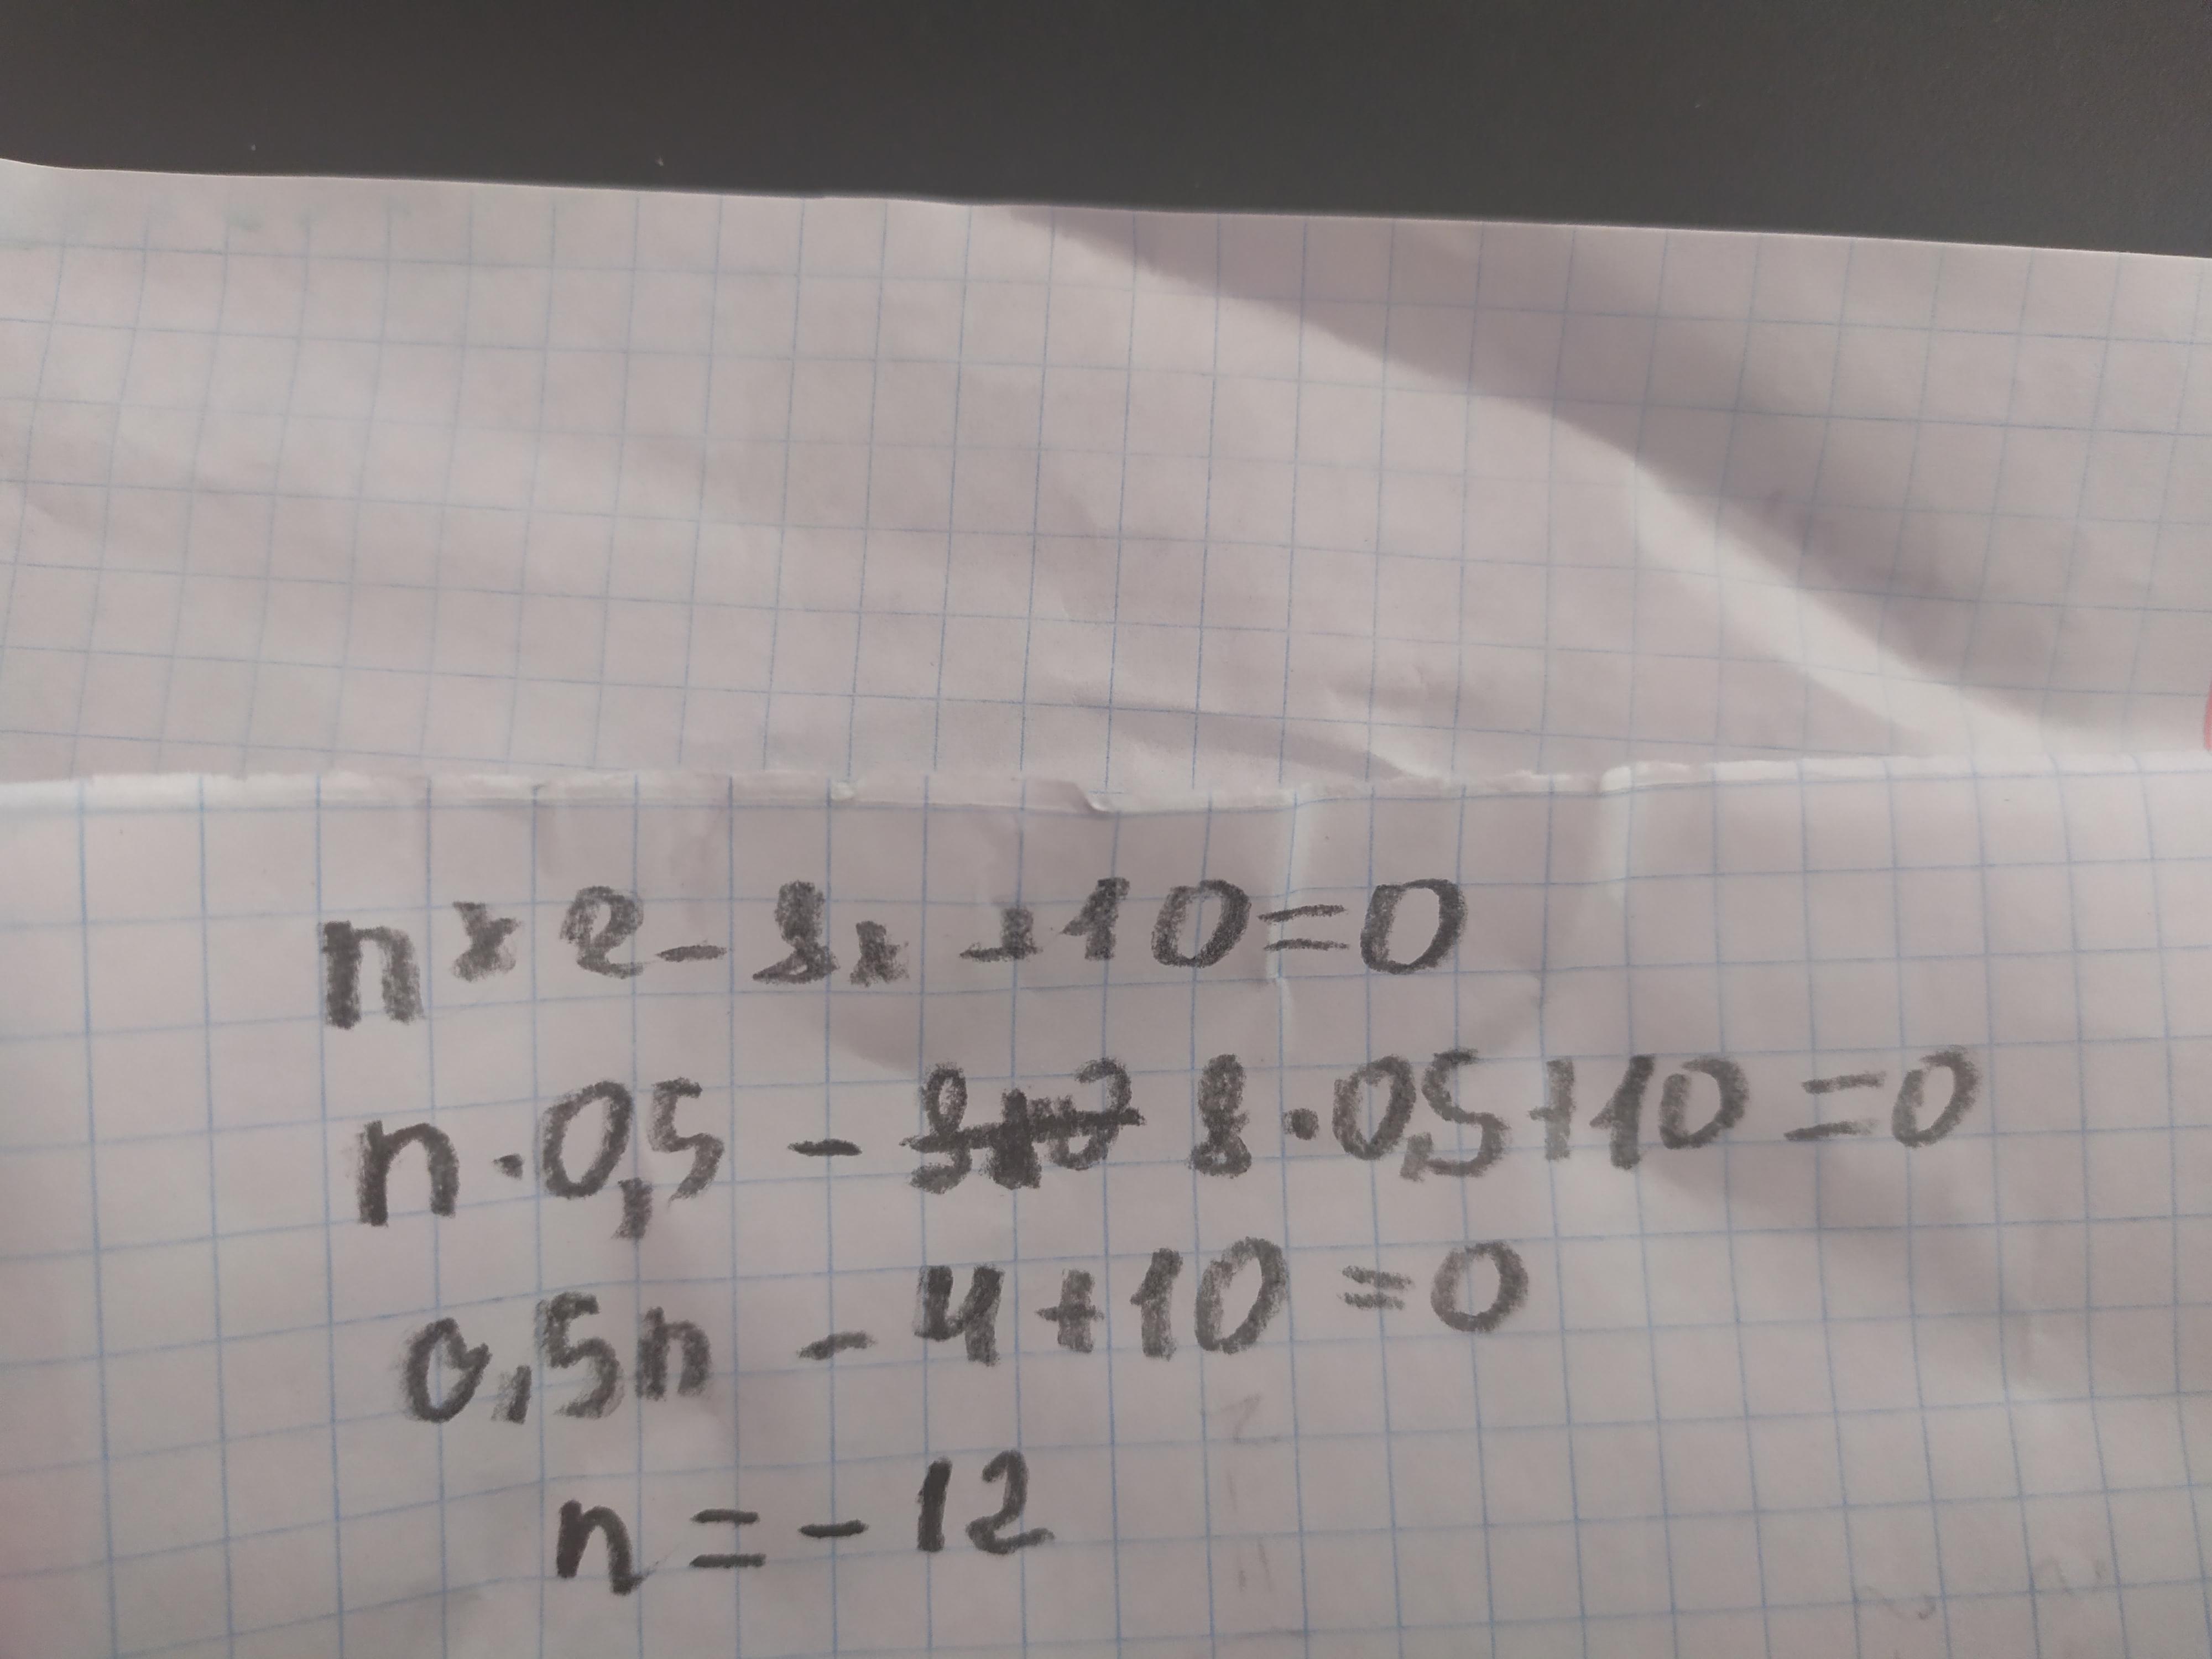 nx2-8x+10=0
n·0,5 - 8·0,5+10=0
0,5n - 4+10=0
n = - 12